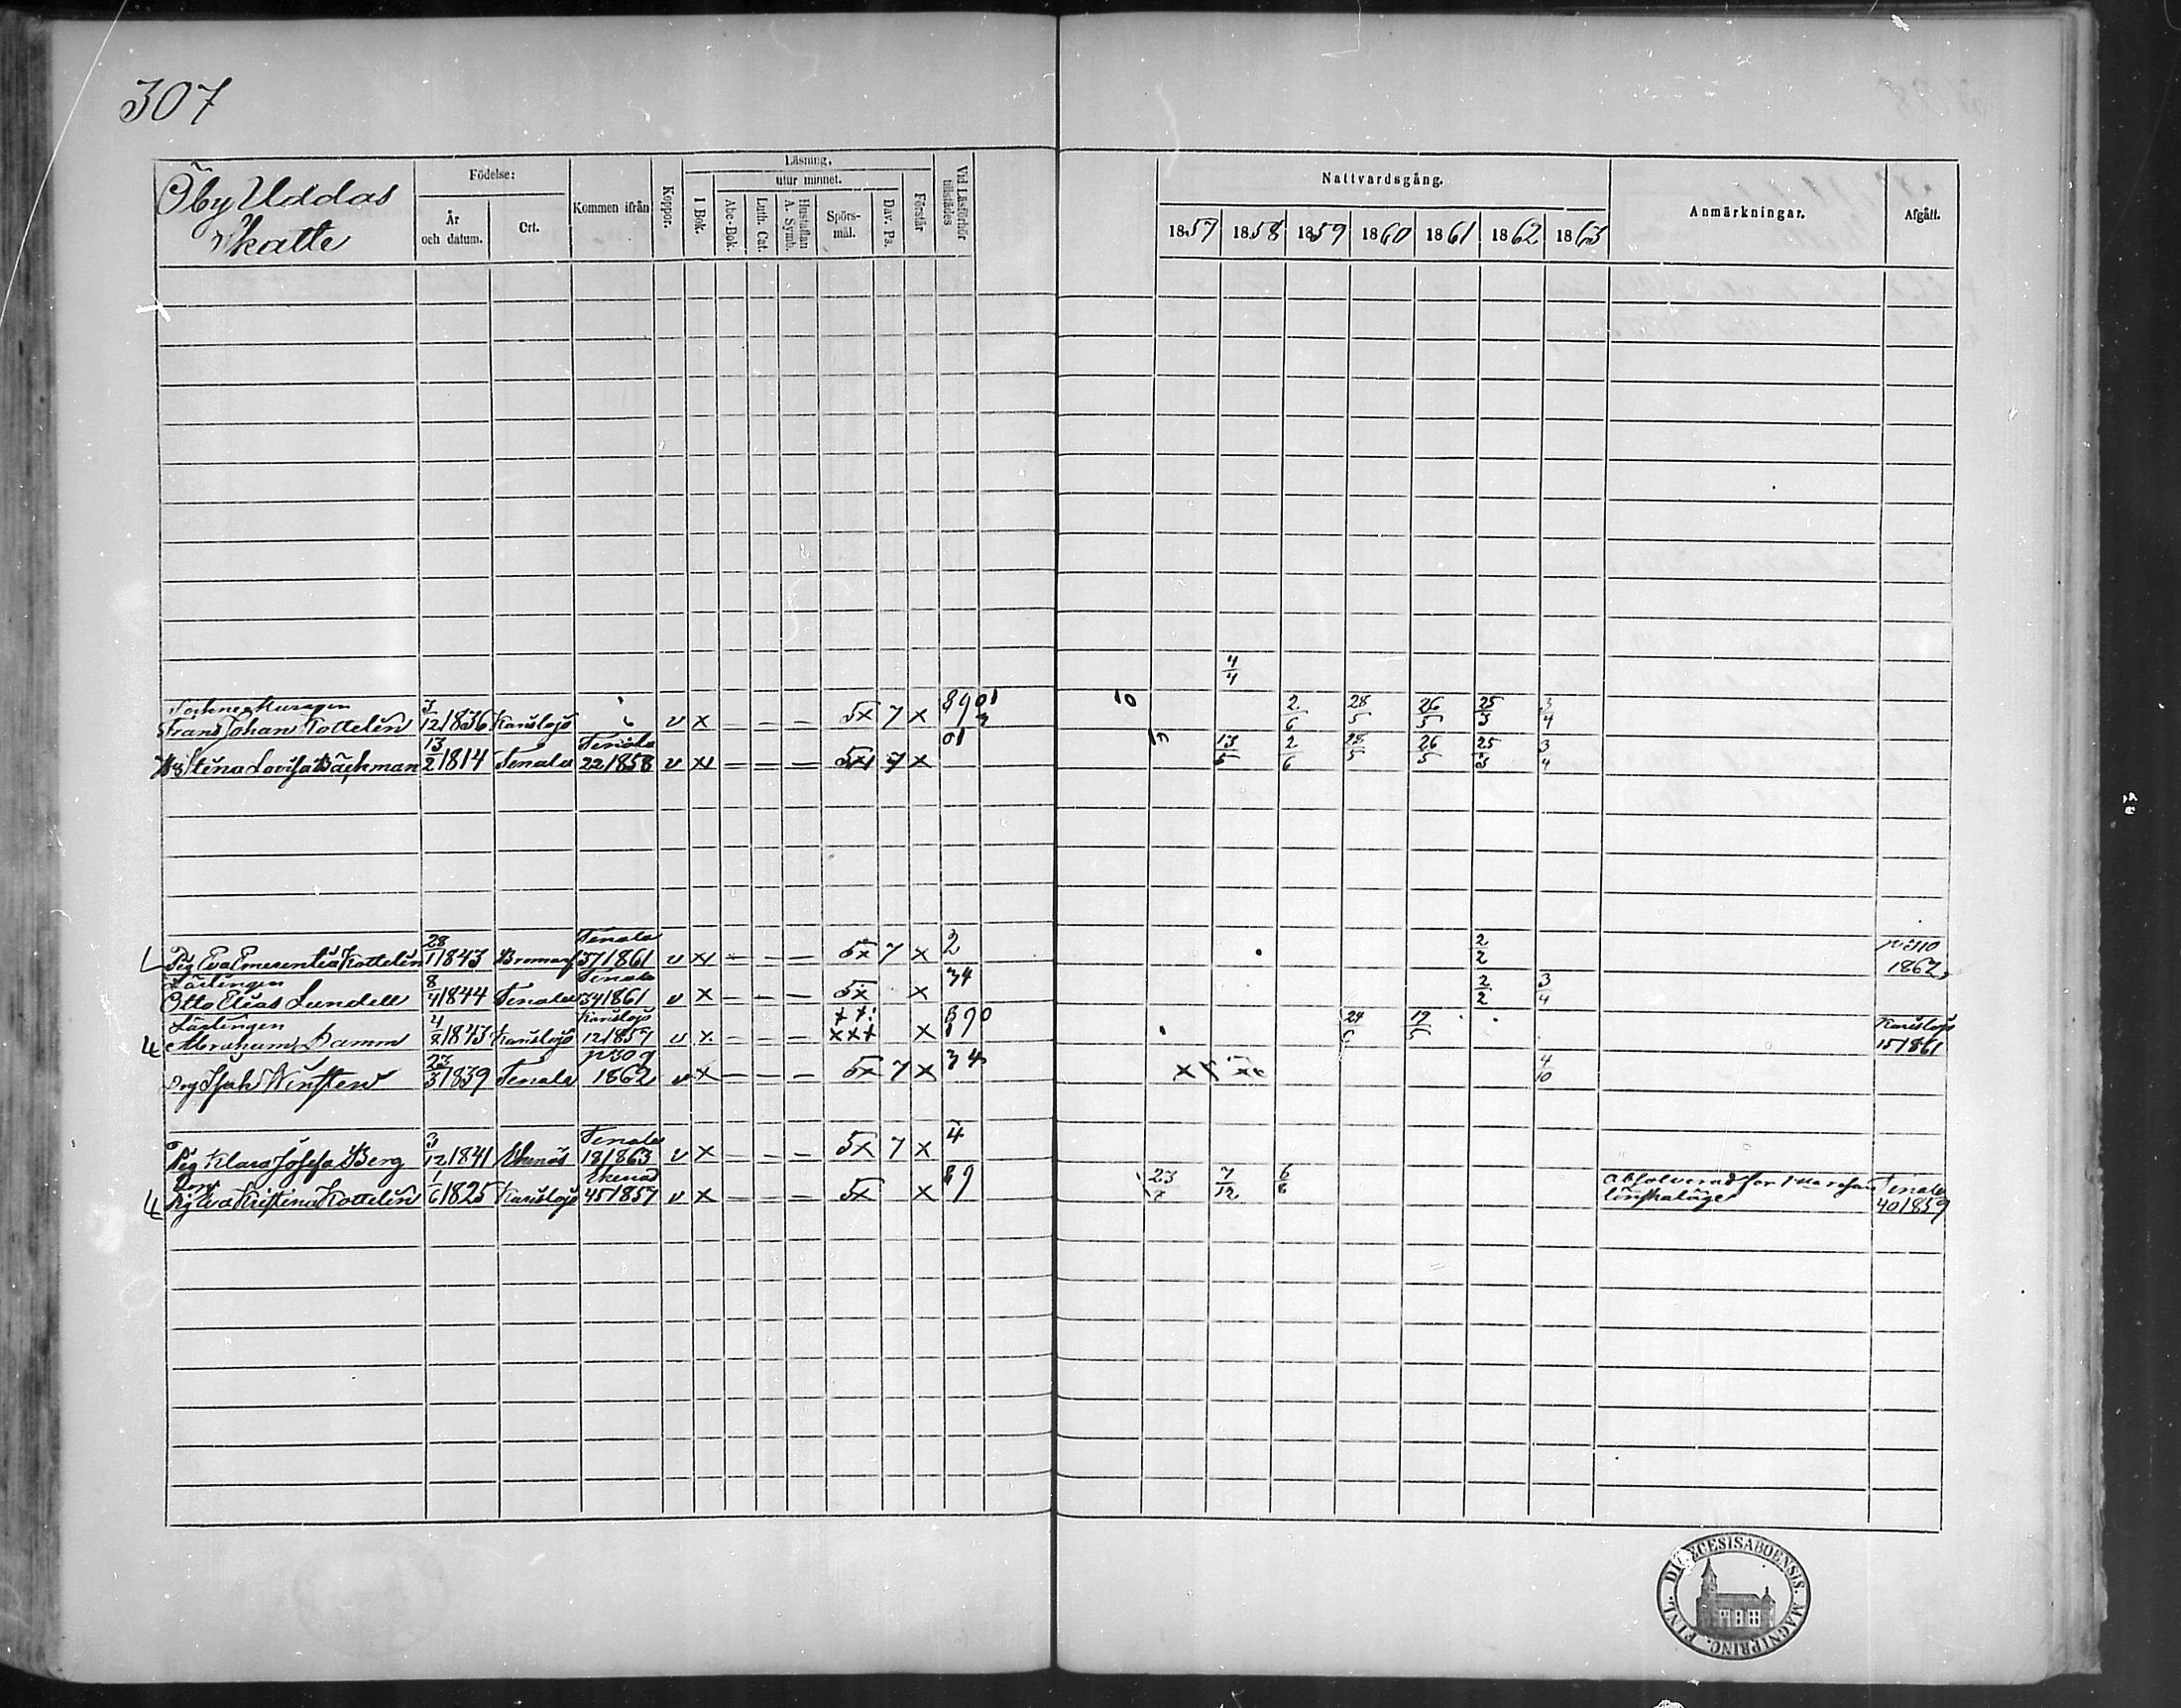 307
Öby Uddas
Skatte
Födelse:
År
och datum.
Ort.
Kommen ifrån
Koppor.
Läsning,
I Bok.
utur minnet.
Abc-Bok.
Luth. Cat.
Hustaflan
A. Symb.
Spörs-
mål.
Dav. Ps.
Förstår
Vid Läsförhör
tillstädes
Nattvardsgång.
1857 1858 1859 1860 1861 1862 1863
Anmärkningar.
Afgått.
4/4
Frans Johan Kottelin 3/12 1836 Karislojo v x – – – 5x 7 x 8901 10 2/6 28/5 26/5 25/3 3/4
Stina Lovisa Bäckman 13/2 1814 Tenala Tenala 22/1858 v x – – – 5x 7 x 01 13/5 2/6 28/5 26/5 25/3 3/4
Pig Eva Emerentia Kottelin 28/1 1843 Bromarf Tenala 37/1861 v x – – – 5x 7 x 2 2/2 p 310 1862
Lärlingen
Otto Elias Lundell 8/4 1844 Tenala Tenala 34/1861 v x – – – 5x x 34 2/2 3/4
Lärlingen
Abraham Damm 4/8 1843 Karislojo Karislojo 12/1857 v x – – – xxx x 890 24/6 19/5 Karislojo 15/1861
Drg Isak Winsten 23/3 1839 Tenala p 309 1862 v x – – – 5x 7 x 34 4/10
Pig Klara Josefa Berg 3/12 1841 Ekenäs Tenala 18/1863 v x – – – 5x 7 x 4
Pig Eva Kristina Kottelin 1/6 1825 Karislojo Ekenäs 45/1857 v x – – – 5x x 89 23/7 7/12 6/8 absolverad för 1sta resan
lönskaläge Tenala 40/1859
DIOECESIS ABOENSIS. MAGNI PRINC. FINL.